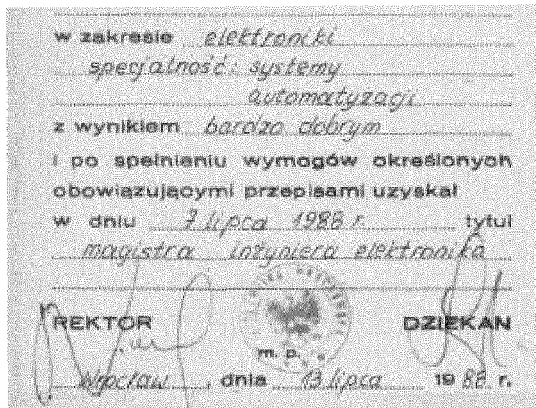 w zakresie elektroniki
specjalność: systemy
automatyzacji
z wynikiem bardzo dobrym
i po spełnieniu wymogów określonych
obowiązującymi przepisami uzyskał
w dniu 7 lipca 1988 r. tytuł
magistra inżyniera elektronika
REKTOR DZIEKAN
m. p.
Wrocław, dnia 13 lipca 19 88 r.